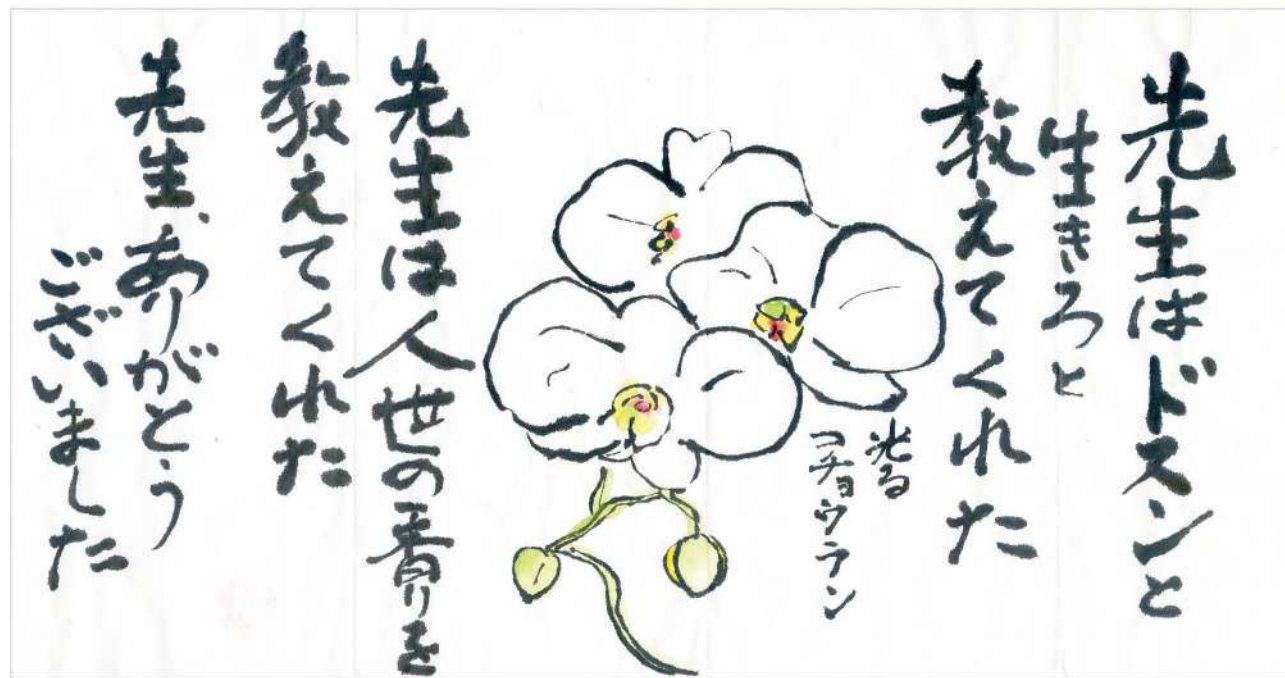 先生はドスンと
生きろと
教えてくれた
光る
コチョウラン
先生は人世の香りを
教えてくれた
先生、ありがとう
ございました